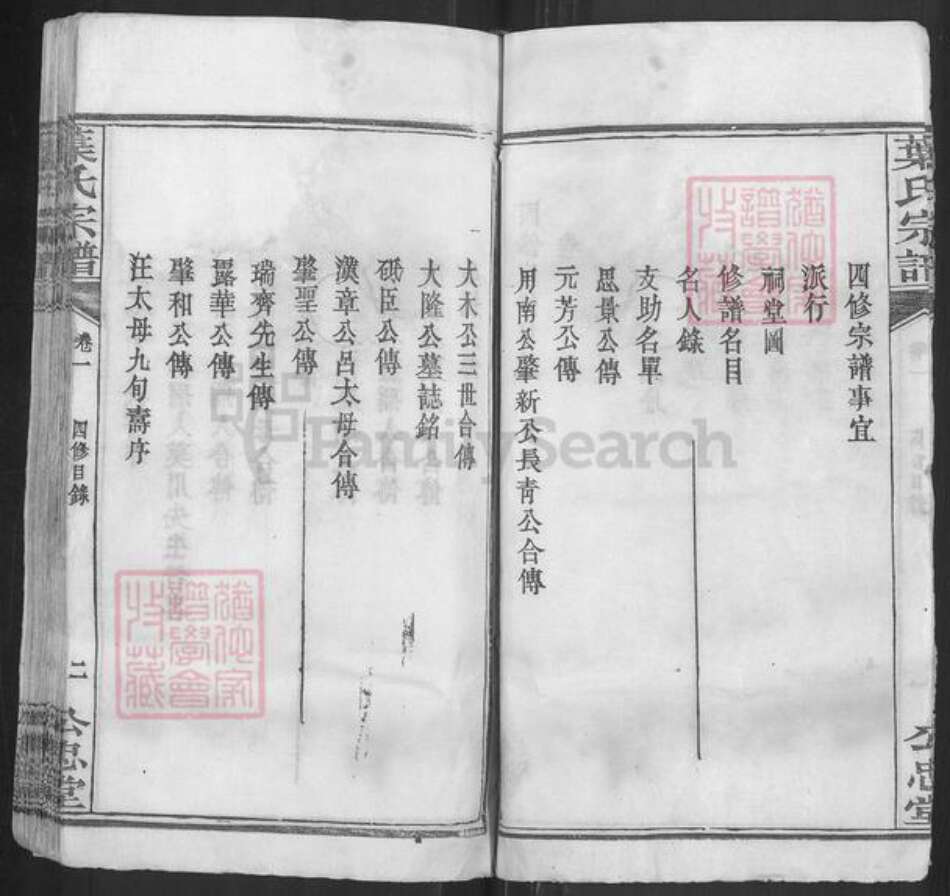 葉氏宗譜
公忠堂
四修宗譜事宜
派行
祠堂圖
修譜名目
名人錄
支助名單
思景公傳
元芳公傳
用南公肇新公長青公合傳
大木公三世合傳
大隆公墓誌銘
硯臣公傳
漢章公呂太母合傳
肇聖公傳
瑞齊先生傳
露華公傳
肇和公傳
汪太母九旬壽序
葉氏宗譜
卷一
四修目錄
二
公忠堂
譜學會
收藏
譜學會
收藏
FamilySearch